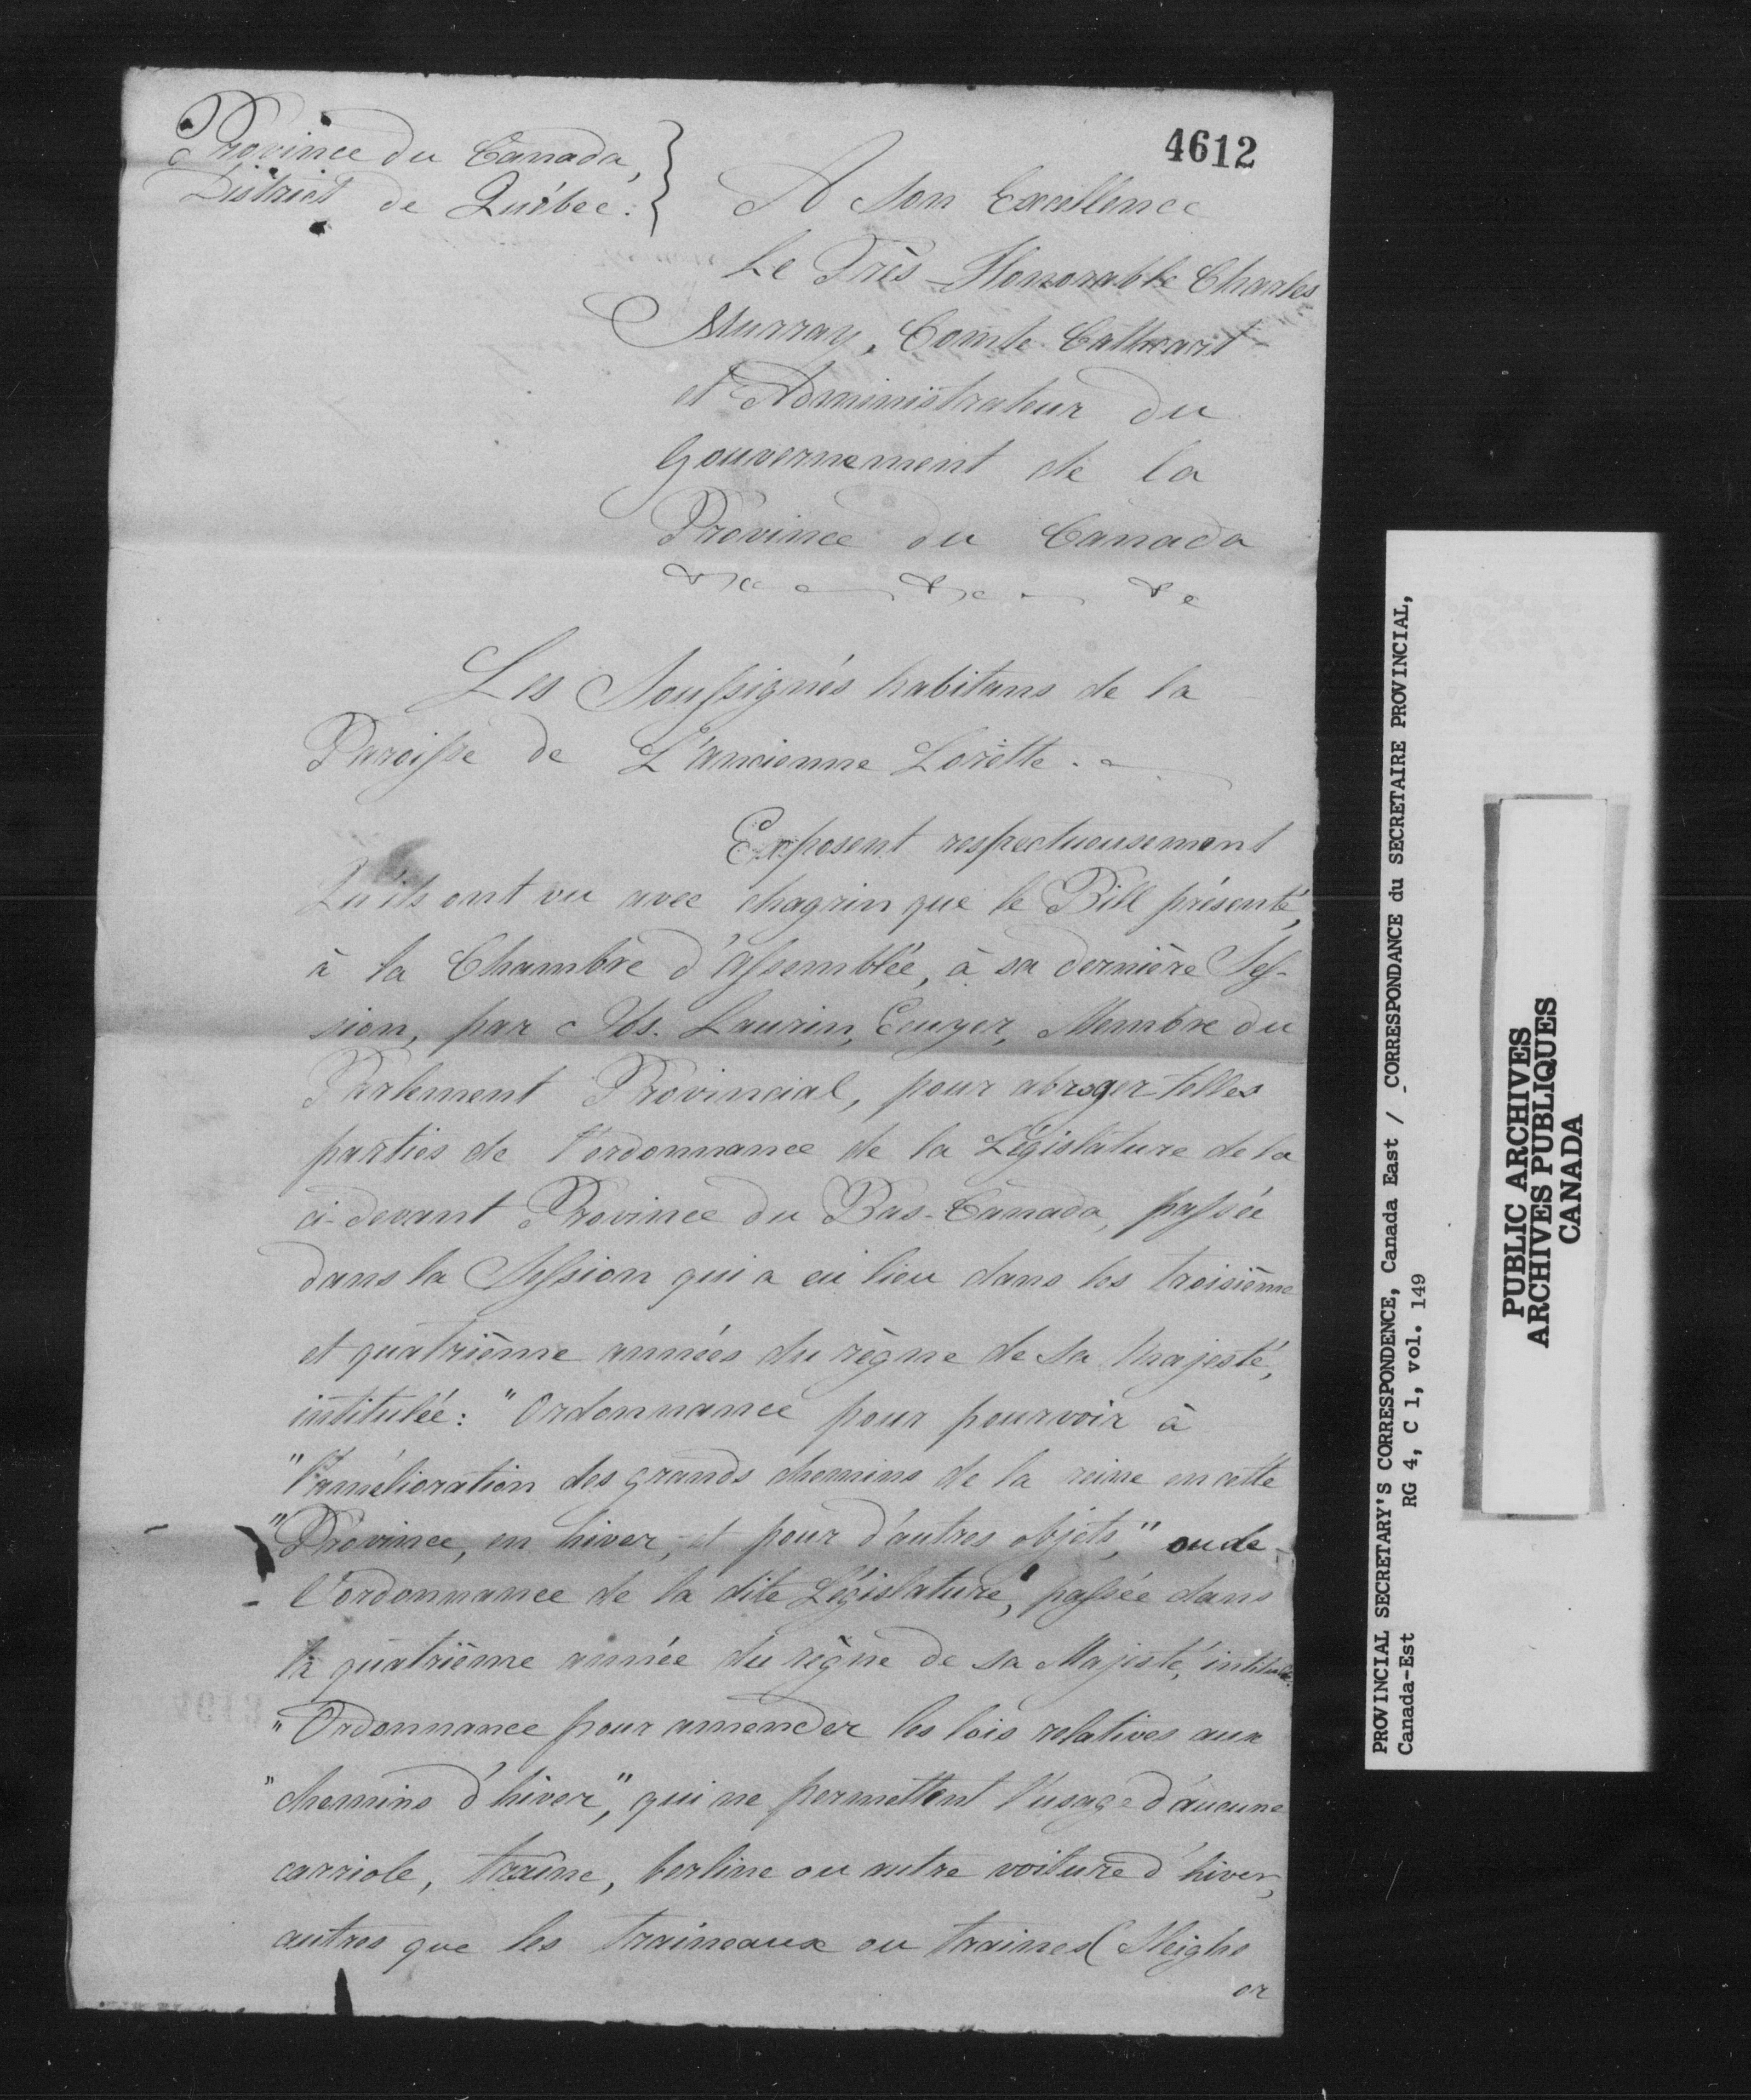 4612
Province du Canada,
District de Québec.
A Son Excellence
Le Très-Honorable Charles
Murray, Comte Cathcart
et Administrateur du
Gouvernement de la
Province du Canada
&c &c &c
Les Soussignés habitans de la
Paroisse de L'ancienne Lorette.
Exposent respectueusement
Qu'ils ont vu avec chagrin que le Bill présenté,
à la Chambre d'assemblée, à sa dernière Ses-
sion, par Jos. Laurin, Ecuyer, Membre du
Parlement Provincial, pour abroger telles
parties de l'ordonnance de la Législature de la
ci-devant Province du Bas-Canada, passée
dans la Session qui a eu lieu dans les troisième
et quatrième années du règne de sa Majesté,
intitulée: "Ordonnance pour pourvoir à
"l'amélioration des grands chemins de la reine en cette
"Province, en hiver, et pour d'autres objets," ou de
l'ordonnance de la dite Législature, passée dans
la quatrième année du règne de sa Majesté, intitulée
"Ordonnance pour amender les lois relatives aux
"chemins d'hiver", qui ne permettent l'usage d'aucune
carriole, traîne, berline ou autre voiture d'hiver,
autres que les traineaux ou traines (Sleighs
or
PROVINCIAL SECRETARY'S CORRESPONDENCE, Canada East / CORRESPONDANCE du SECRETAIRE PROVINCIAL,
Canada-Est RG 4, C 1, vol. 149
PUBLIC ARCHIVES
ARCHIVES PUBLIQUES
CANADA